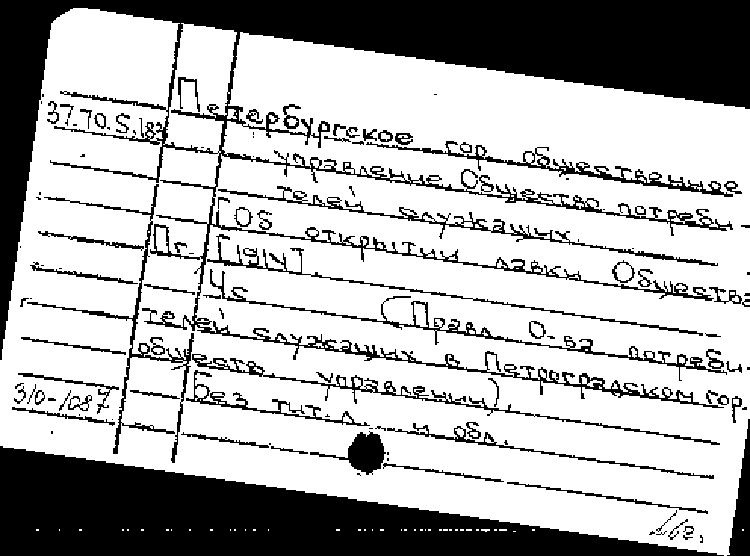 Петербургское гор. общественное
37.70.5.183
управление. Общество потреби-
телей служащих.
[Об открытии лавки Общества
Пг. [1914].
4 с. (Правл. О-ва потреби-
телей служащих в Петроградском гор.
обществ. управлении).
Без тит. л. и обл.
310-1087